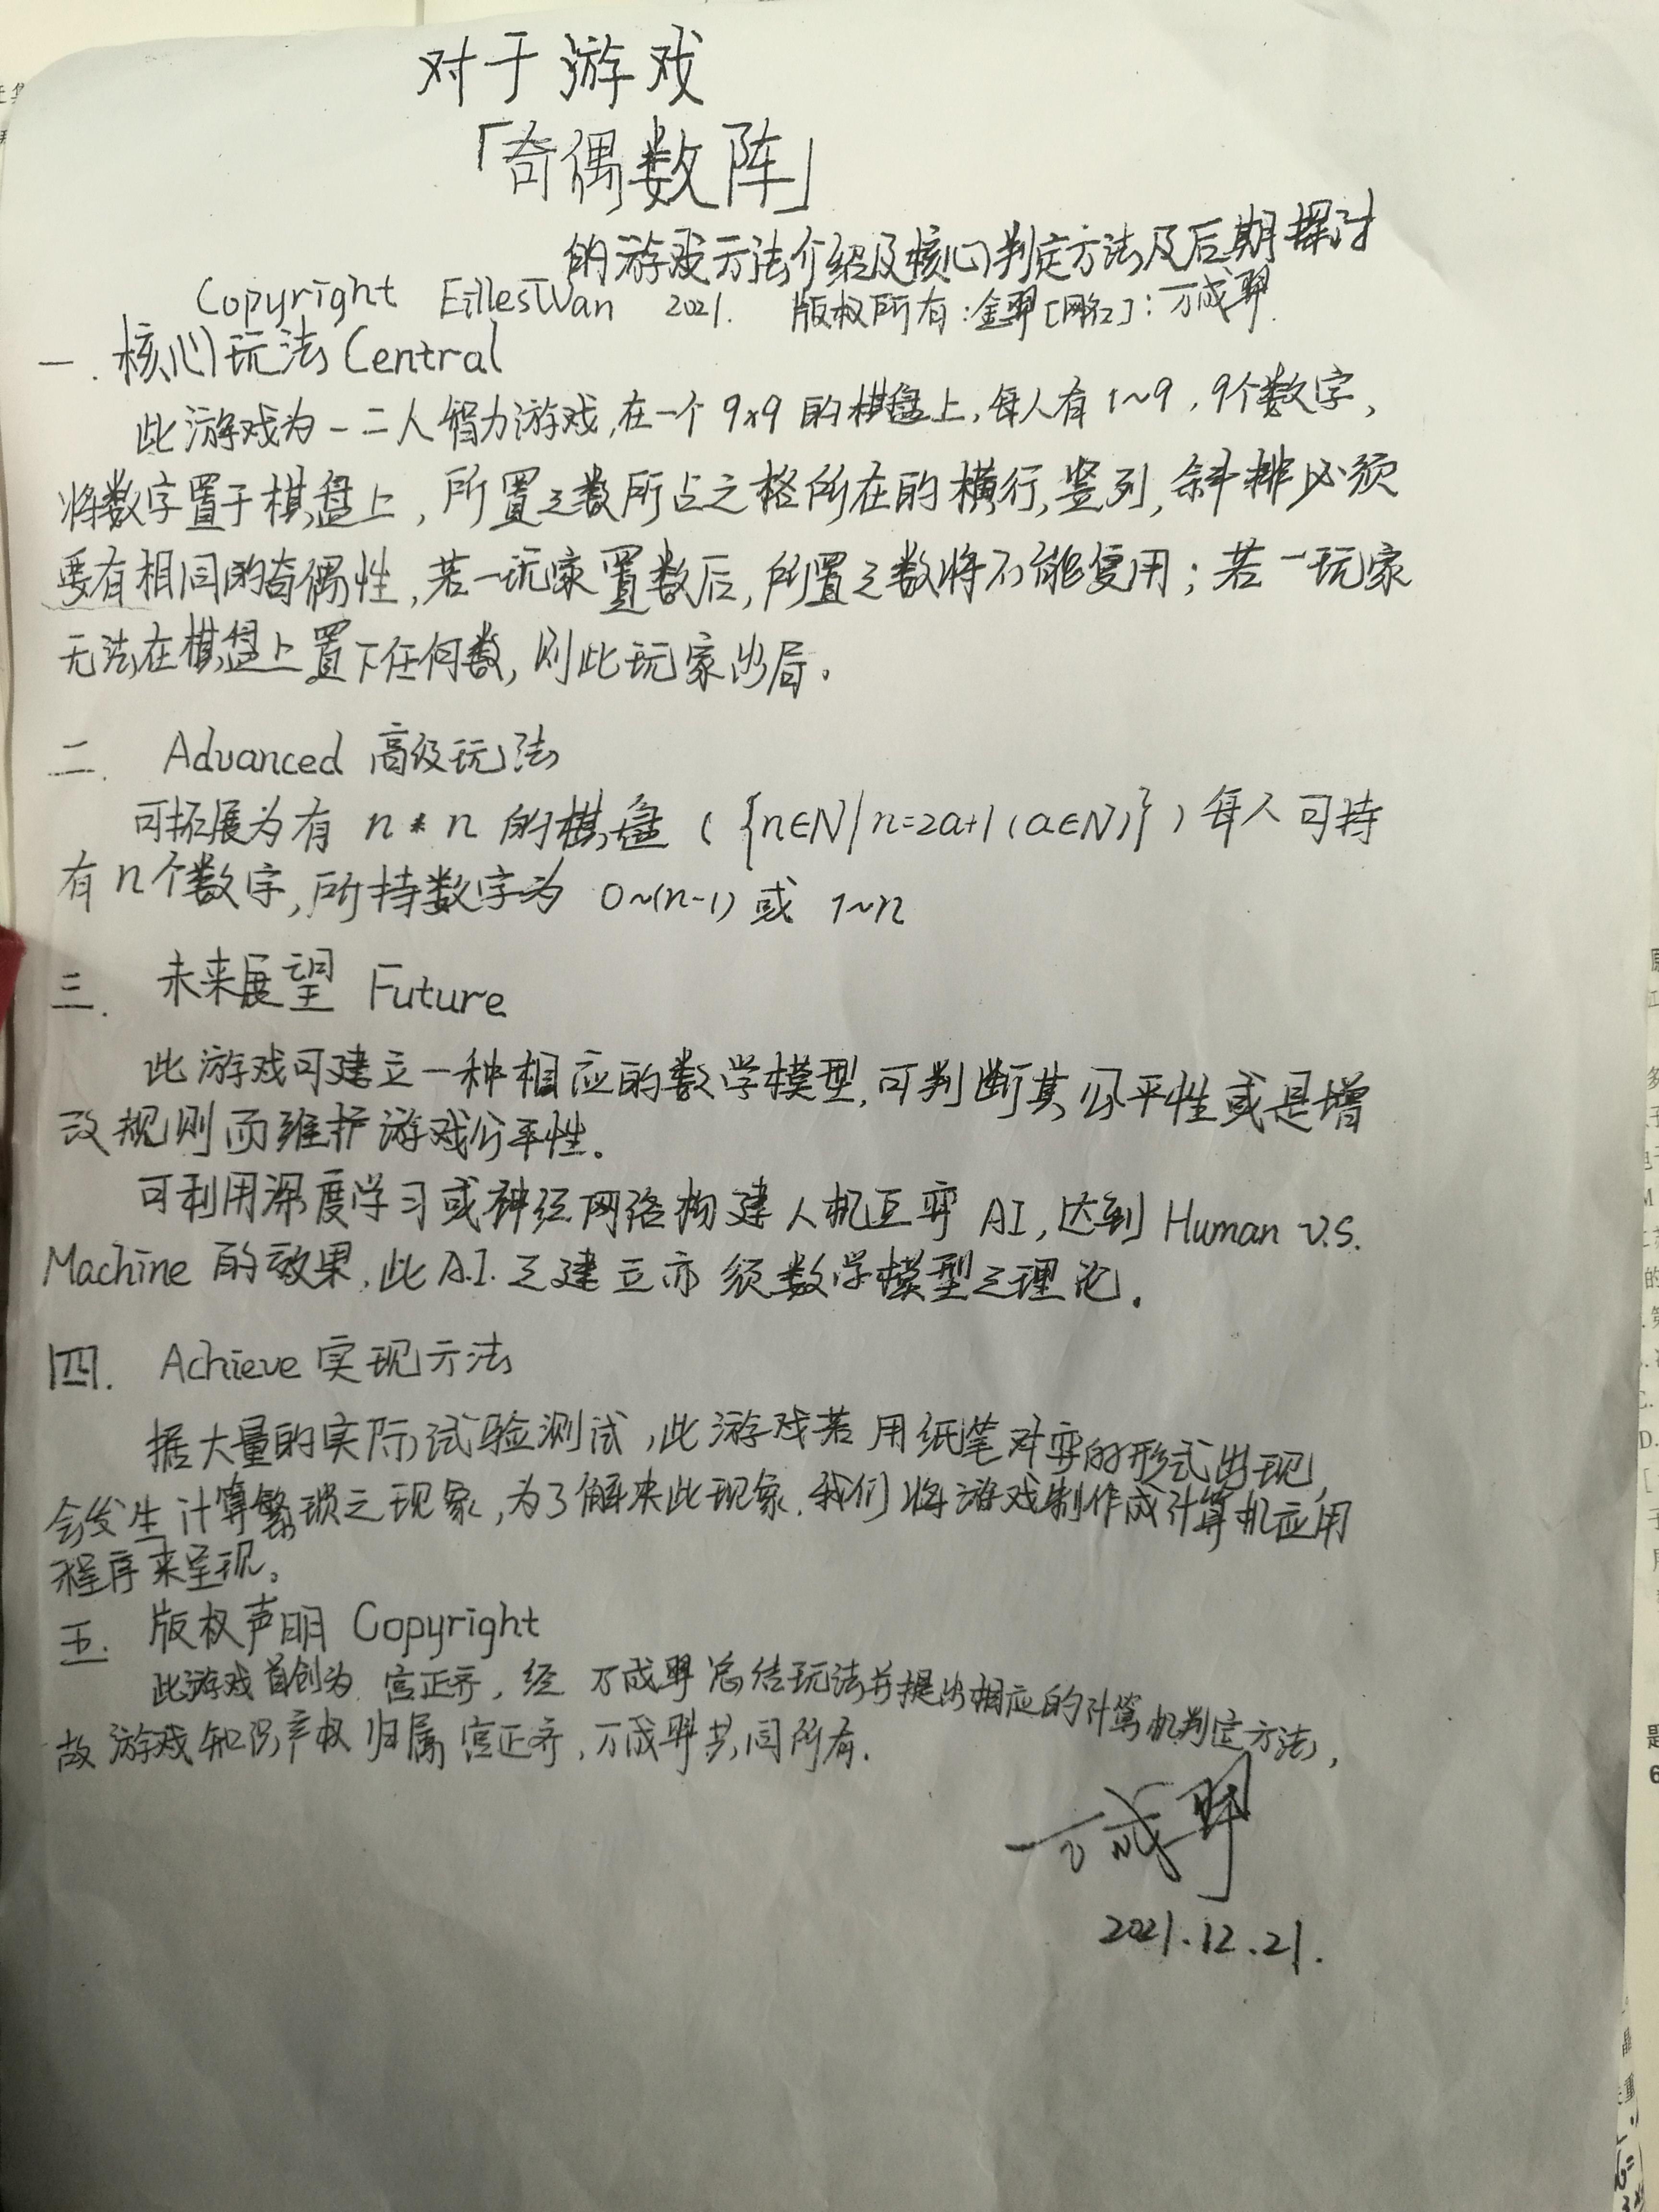 对于游戏
「奇偶数阵」
的游戏方法介绍及核心判定方法及后期探讨
Copyright EillesWan 2021. 版权所有:金羿[网名]:万成羿.
一. 核心玩法 Central
此游戏为一二人智力游戏,在一个9×9的棋盘上,每人有1~9,9个数字,
将数字置于棋盘上,所置之数所占之格所在的横行,竖列,斜排必须
要有相同的奇偶性,若一玩家置数后,所置之数将不能复用;若一玩家
无法在棋盘上置下任何数,则此玩家出局。
二. Advanced 高级玩法
可拓展为有 n*n 的棋盘({n∈N|n=2a+1(a∈N)})每人可持
有n个数字,所持数字为 0~(n-1) 或 1~n
三. 未来展望 Future
此游戏可建立一种相应的数学模型,可判断其公平性或是增
改规则而维护游戏公平性.
可利用深度学习或神经网络构建人机互弈 AI,达到 Human v.s.
Machine 的效果,此A.I.之建立亦须数学模型之理论.
四. Achieve 实现方法
据大量的实际试验测试,此游戏若用纸笔对弈的形式出现,
会发生计算繁琐之现象,为了解决此现象.我们将游戏制作成计算机应用
程序来呈现。
五. 版权声明 Copyright
此游戏首创为 宫正齐,经 万成羿总结玩法并提出相应的计算机判定方法,
故游戏知识产权归属宫正齐,万成羿共同所有.
万成羿
2021.12.21.